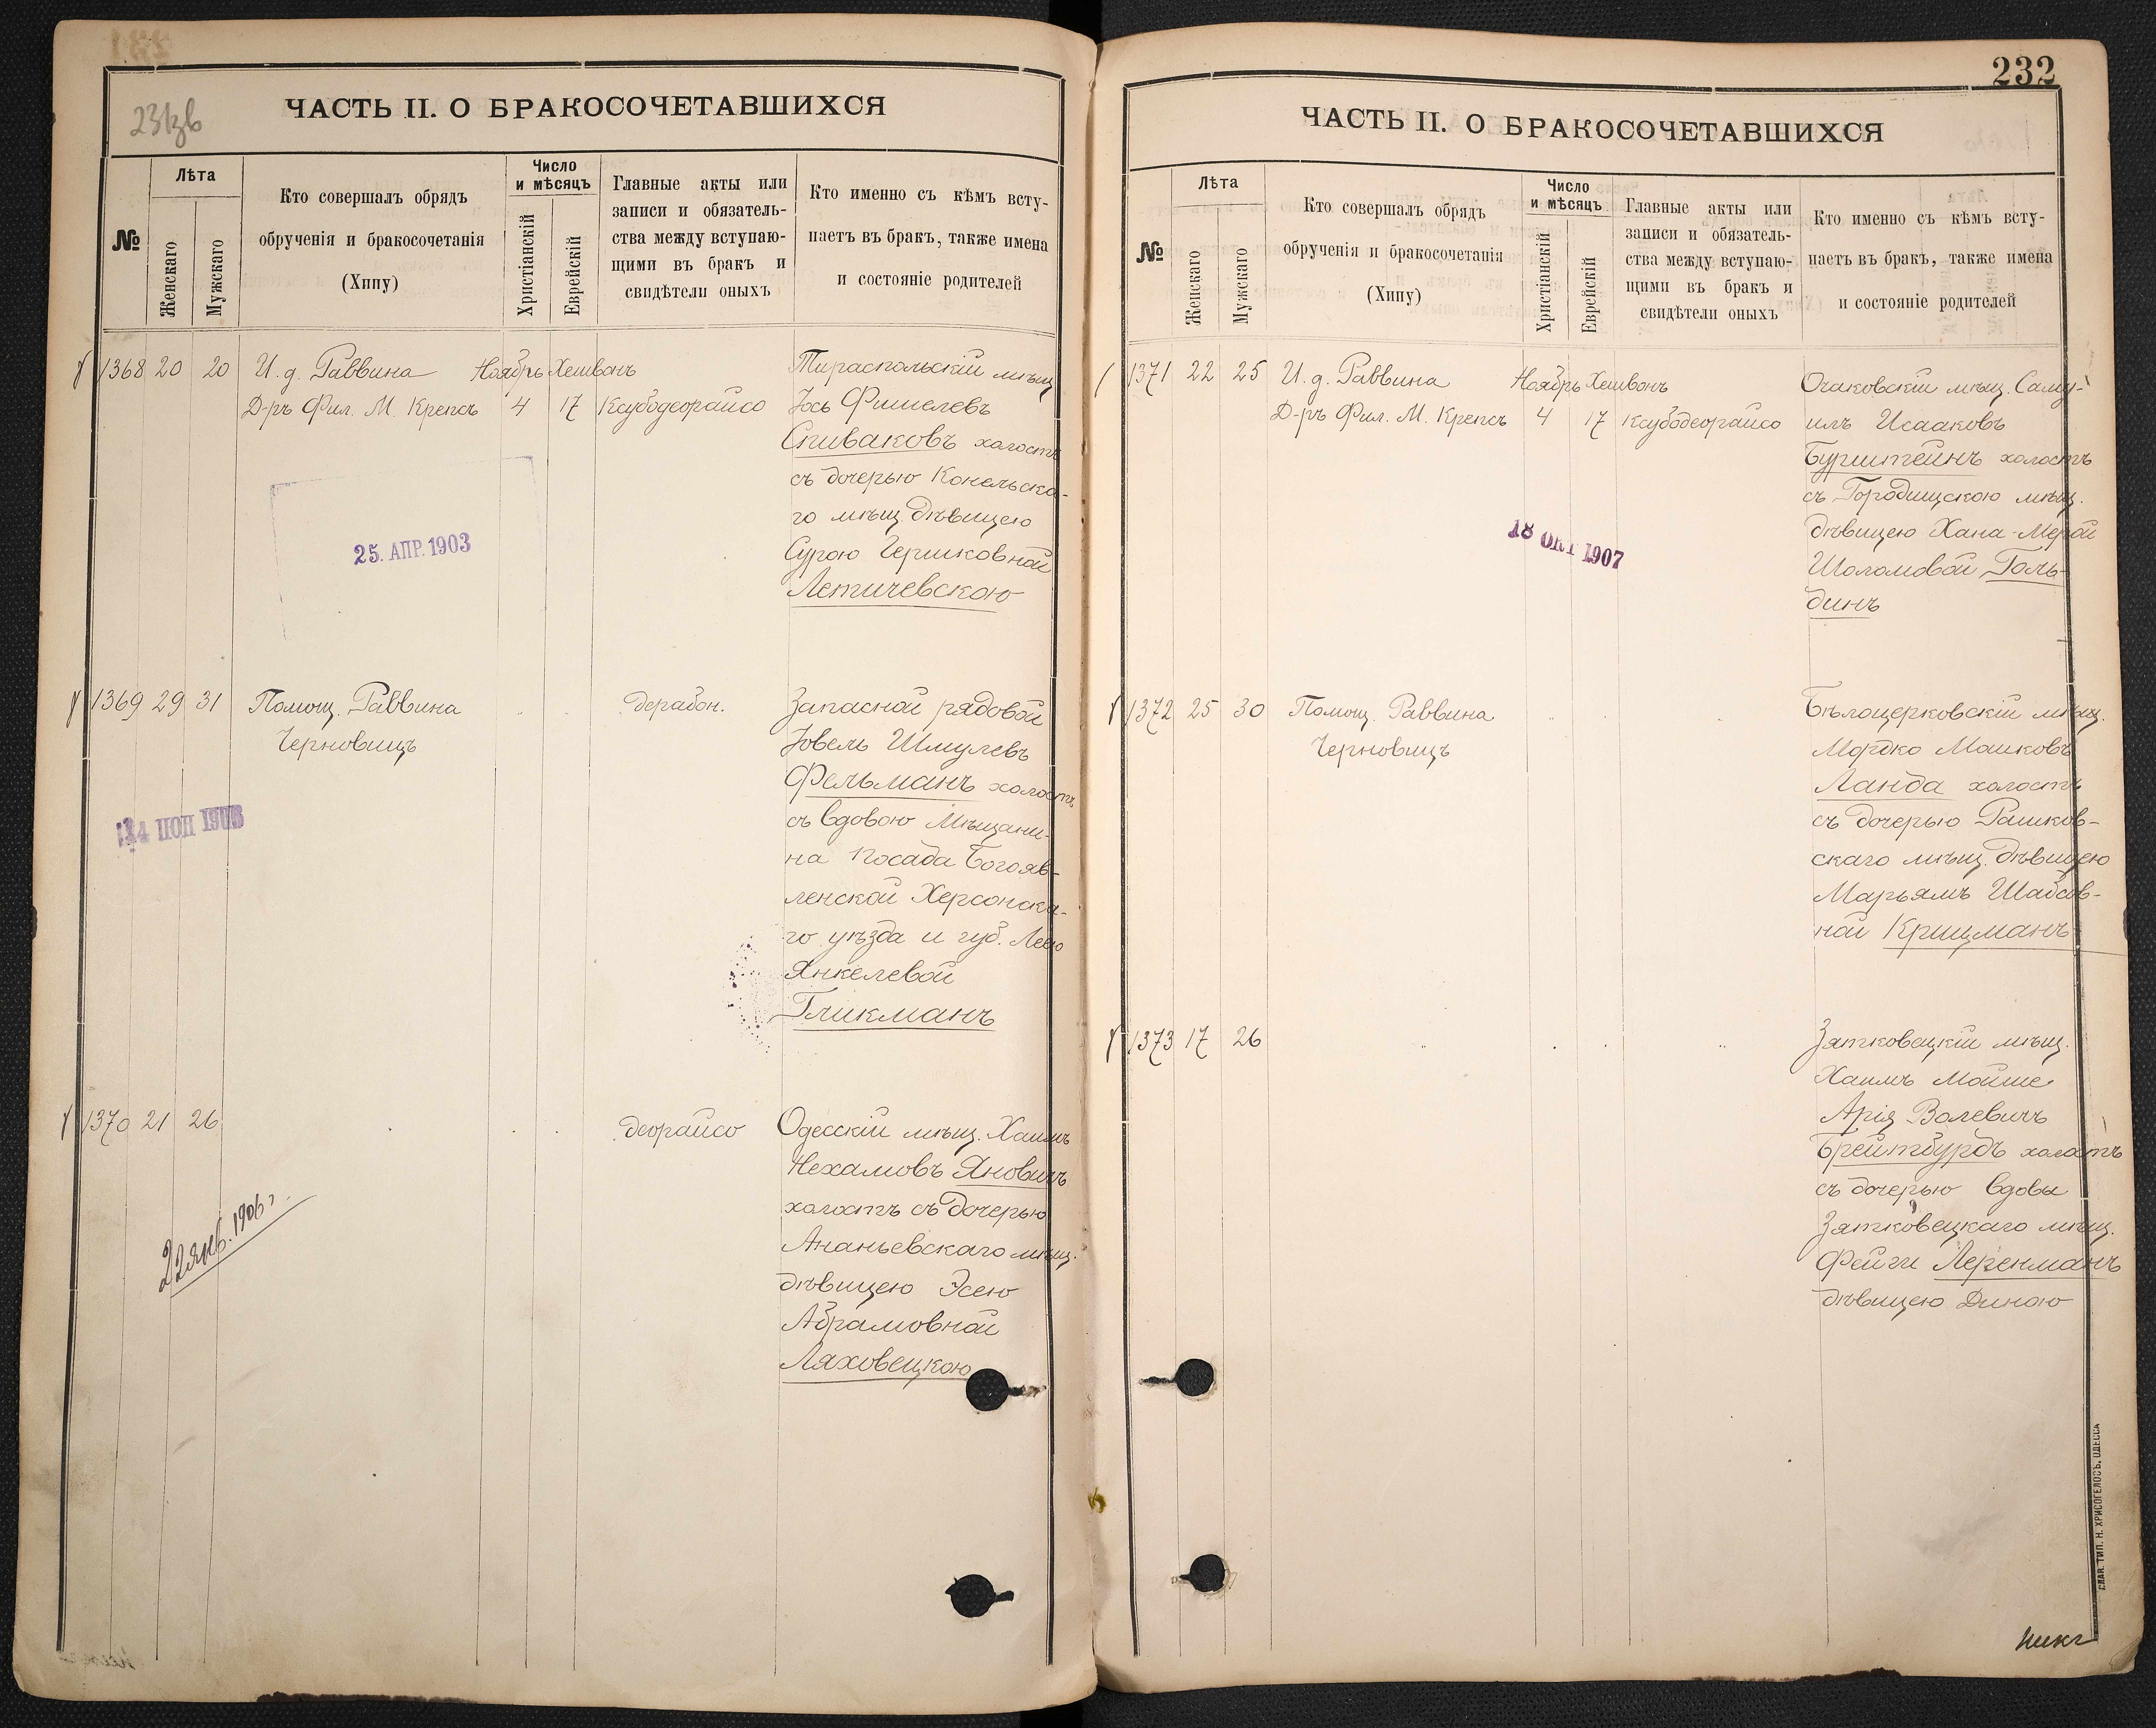 231зв
ЧАСТЬ II. О БРАКОСОЧЕТАВШИХСЯ
№
Лѣта
Женскаго
Мужскаго
Кто совершалъ обрядъ
обрученія и бракосочетанія
(Хипу)
Число
и мѣсяцъ
Христіанскій
Еврейскій
Главные акты или
записи и обязатель-
ства между вступаю-
щими въ бракъ и
свидѣтели оныхъ
Кто именно съ кѣмъ всту-
паетъ въ бракъ, также имена
и состояніе родителей
1368 20 20 И. д. Раввина Ноябрь Хешвонъ
Д-ръ Фил. М. Крепсъ 4 17 Ксубодеорайсо
Тираспольскій мѣщ
Іось Фишелевъ
Спиваковъ холостъ
съ дочерью Конельска-
го мѣщ дѣвицею
Сурою Гершковной
Летичевскою
25. АПР. 1903
1369 29 31 Помощ. Раввина
Черновицъ
дерабон.
Запасной рядовой
Іовель Шмулевъ
Фельманъ холостъ
съ вдовою Мѣщани-
на посада Богояв-
ленской Херсонска-
го уѣзда и губ. Леею
Янкелевой
Гликманъ
1370 21 26
деорайсо
Одесскій мѣщ. Хаимъ
Нехамовъ Яновичъ
холостъ съ дочерью
Ананьевскаго мѣщ.
дѣвицею Эсею
Абрамовной
Ляховецкою
22 янв. 1906 г.
232
ЧАСТЬ II. О БРАКОСОЧЕТАВШИХСЯ
№
Лѣта
Женскаго
Мужскаго
Кто совершалъ обрядъ
обрученія и бракосочетанія
(Хипу)
Число
и мѣсяцъ
Христіанскій
Еврейскій
Главные акты или
записи и обязатель-
ства между вступаю-
щими въ бракъ и
свидѣтели оныхъ
Кто именно съ кѣмъ всту-
паетъ въ бракъ, также имена
и состояніе родителей
1371 22 25 И. д. Раввина Ноябрь Хешвонъ
Д-ръ Фил. М. Крепсъ 4 17 Ксубодеорайсо
Очаковскій мѣщ. Саму-
илъ Исааковъ
Бурштейнъ холостъ
съ Городищскою мѣщ.
дѣвицею Хана-Мерой
Шоломовой Голь-
динъ
18 ОКТ 1907
1372 25 30 Помощ. Раввина
Черновицъ
Бѣлоцерковскій мѣщ.
Мордко Мошковъ
Ланда холостъ
съ дочерью Рашков-
скаго мѣщ. дѣвицею
Марьямъ Шабсов-
ной Крицманъ
1373 17 26
Зятковецкій мѣщ.
Хаимъ Мойше
Арія Волевичъ
Брейтбурдъ холостъ
съ дочерью вдовы
Зятковецкаго мѣщ.
Фейги Леренманъ
дѣвицею Диною
СЛАВ. ТИП. Н. ХРИСОГЕЛОСЪ, ОДЕССА